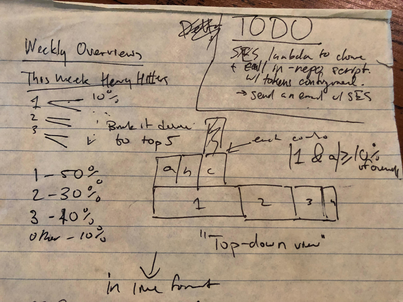 Weekly Overviews
This Week Heavy Hitters
1 10%
2
3
Break it down
to top 5
1 - 50%
2 - 30%
3 - 10%
other - 10%
TODO
SES / lambda to
call in-repo script
w/ tokens consumed
→ send an email w/ SES
each
a b c
1 2 3
|1 & a| ≥ 10%
of overall
"Top-down view"
in line format